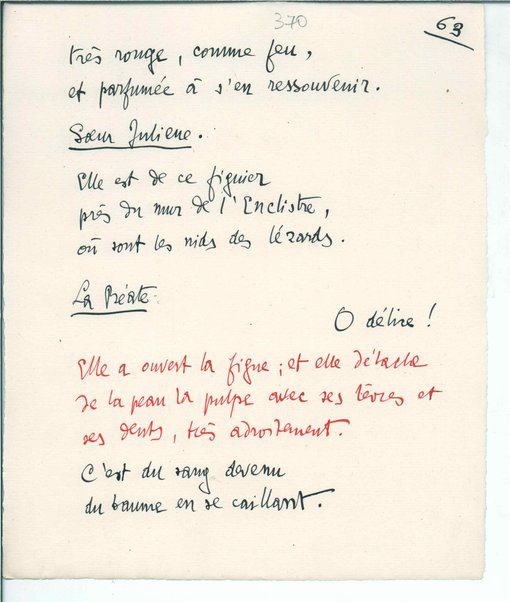 370
63
très rouge, comme feu,
et parfumée à s'en ressouvenir.
Sœur Juliene.
Elle est de ce figuier
près du mur de l'Enclistre,
où sont les nids des lézards.
La Béate.
O délire !
Elle a ouvert la figue ; et elle détache
de la peau la pulpe avec ses lèvres et
ses dents, très adroitement.
C'est du sang devenu
du baume en se caillant.